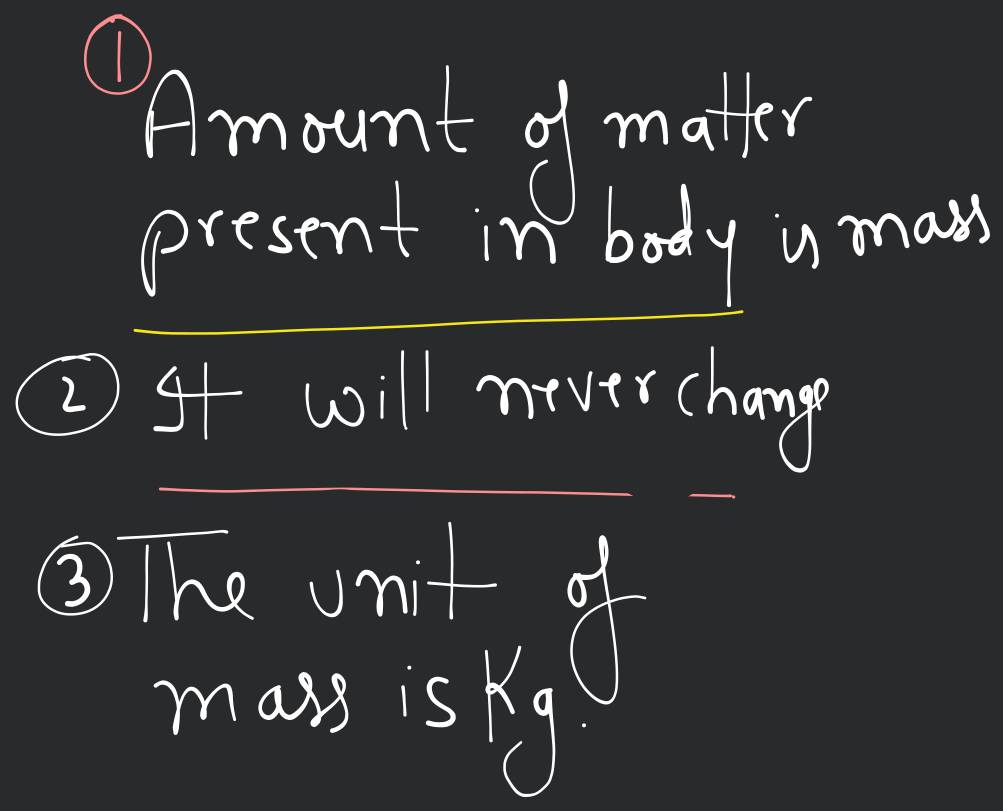 ① Amount of matter
present in body is mass
② It will never change
③ The unit of
mass is Kg.